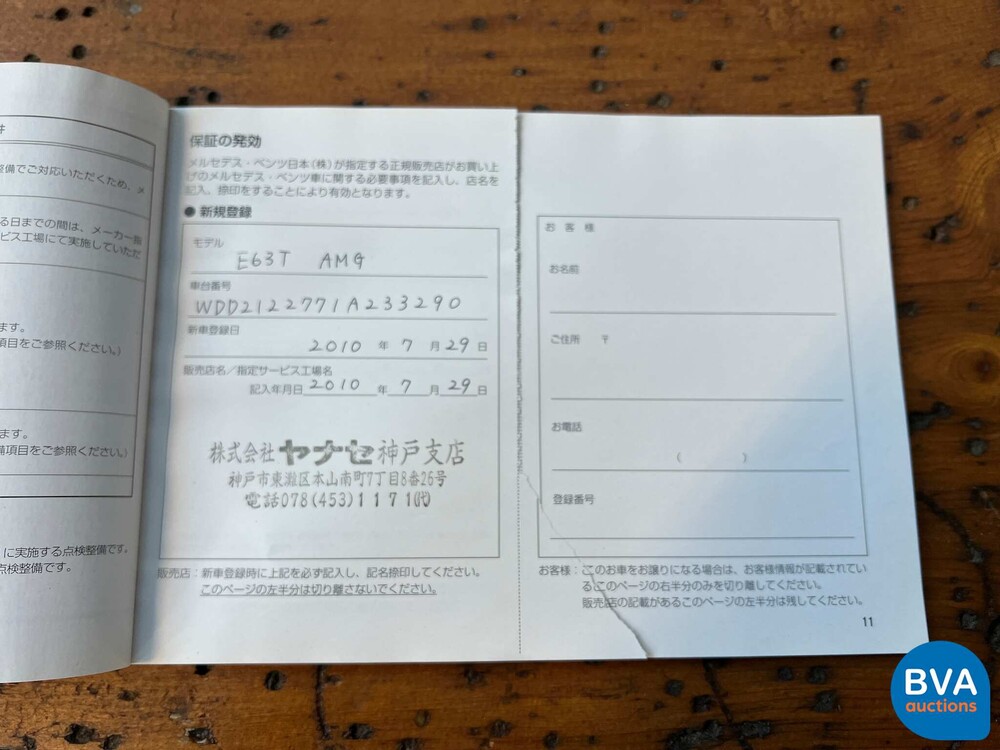 件
整備でご対応いただくため、メ
る日までの間は、メーカー指
ビス工場にて実施していただ
ます。
項目をご参照ください。)
ます。
備項目をご参照ください。)
に実施する点検整備です。
点検整備です。
保証の発効
メルセデス・ベンツ日本(株)が指定する正規販売店がお買い上
げのメルセデス・ベンツ車に関する必要事項を記入し、店名を
記入、捺印をすることにより有効となります。
● 新規登録
モデル
E63T AMG
車台番号
WDD2122771A233290
新車登録日
2010 年 7 月 29 日
販売店名/指定サービス工場名
記入年月日 2010 年 7 月 29 日
株式会社 ヤナセ 神戸支店
神戸市東灘区本山南町7丁目8番26号
電話078(453)1171(代)
販売店:新車登録時に上記を必ず記入し、記名捺印してください。
このページの左半分は切り離さないでください。
お客様
お名前
ご住所 〒
お電話
( )
登録番号
お客様:このお車をお譲りになる場合は、お客様情報が記載されてい
るこのページの右半分のみを切り離してください。
販売店の記載があるこのページの左半分は残してください。
11
BVA
auctions